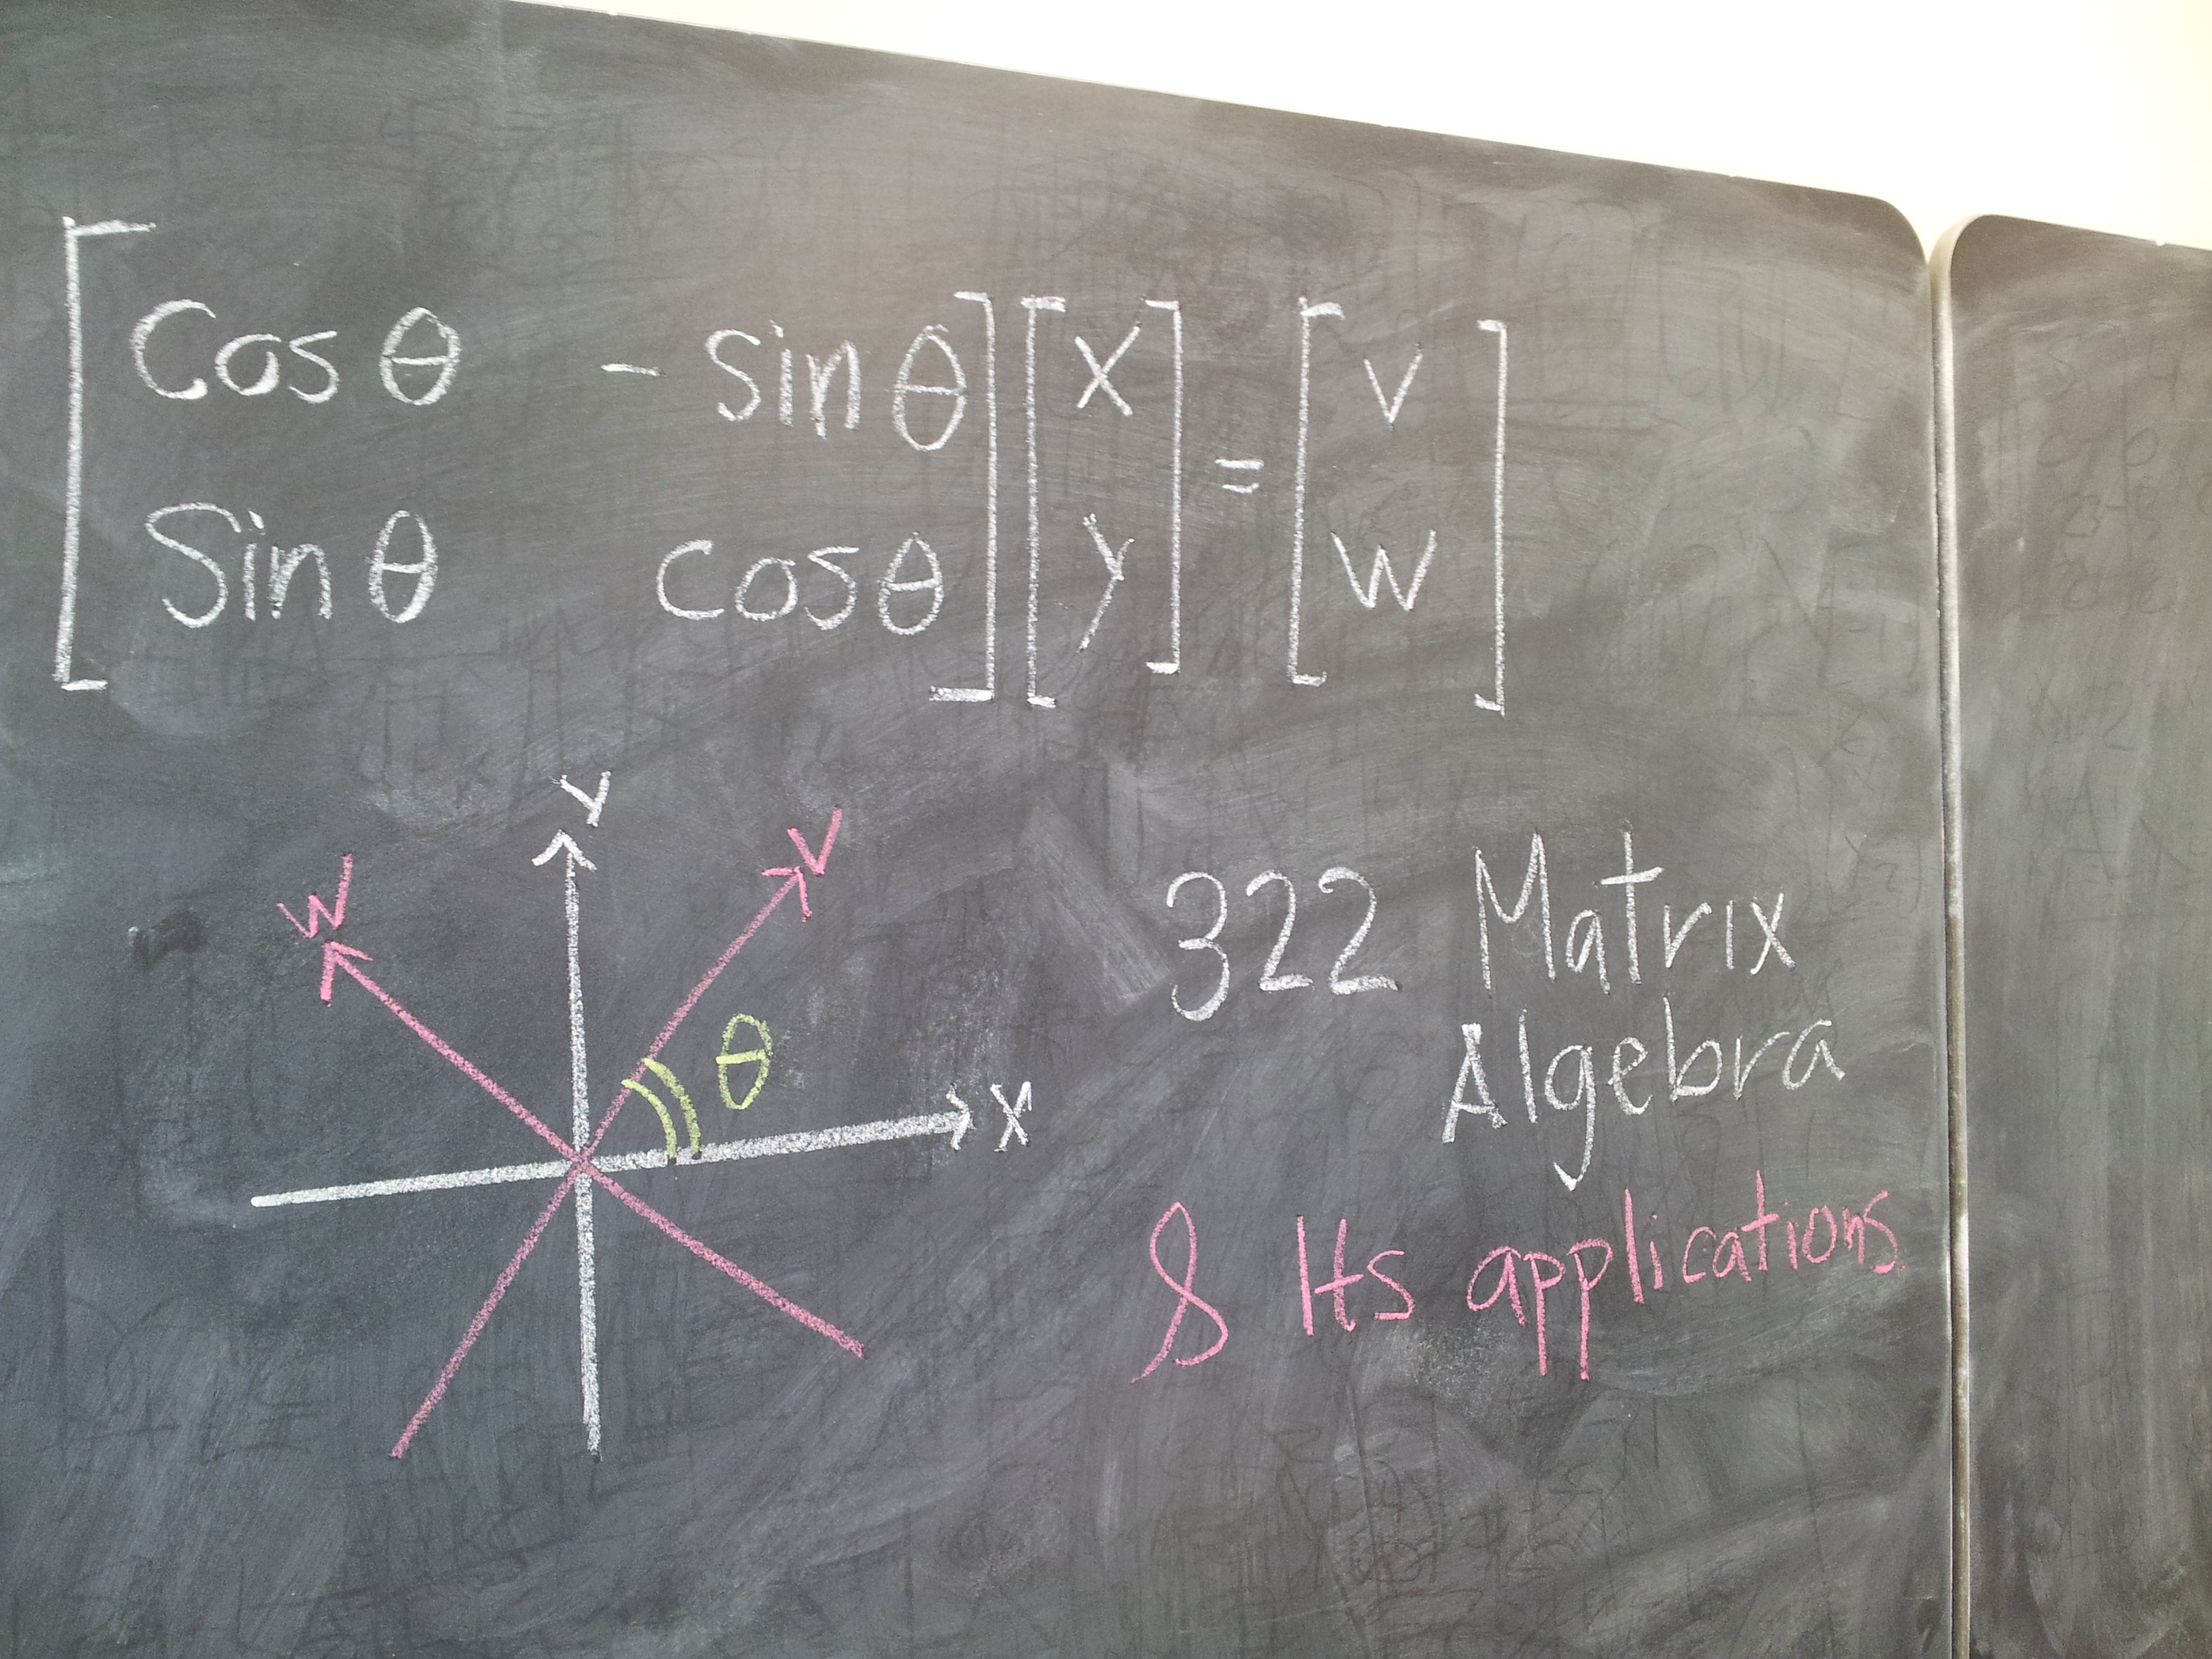 [ Cos θ - sin θ ] [ x ] = [ v ]
[ Sin θ cos θ ] [ y ] [ w ]
Y
V
W
θ
X
322 Matrix
Algebra
& Its applications.